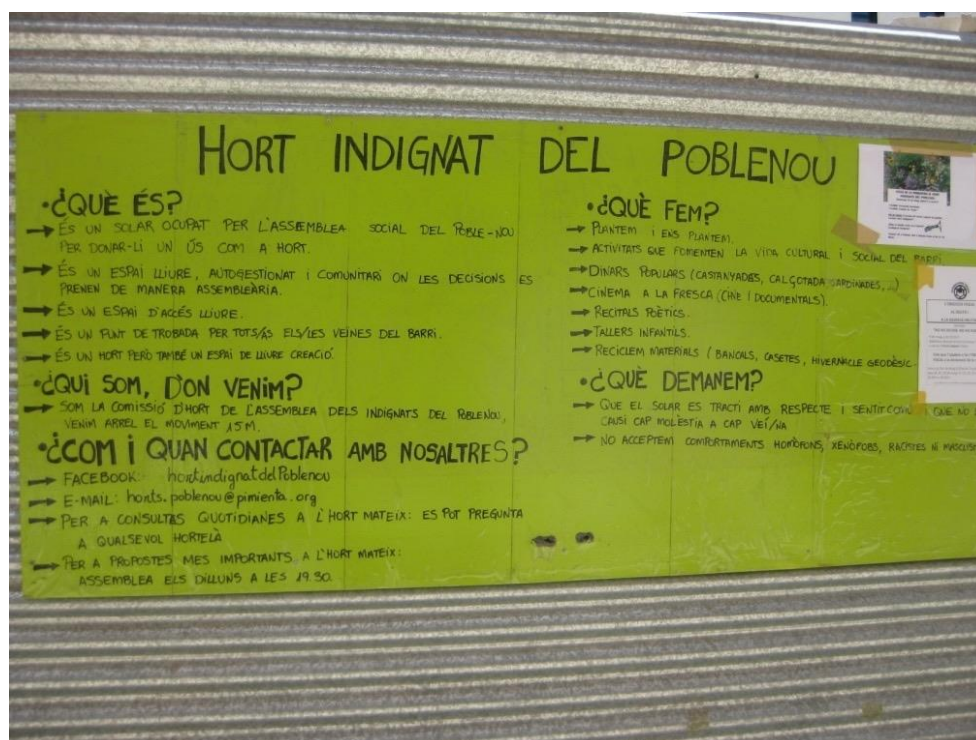 HORT INDIGNAT DEL POBLENOU
•¿QUÈ ÉS?
→ ÉS UN SOLAR OCUPAT PER L'ASSEMBLEA SOCIAL DEL POBLE-NOU
PER DONAR-LI UN ÚS COM A HORT.
→ ÉS UN ESPAI LLIURE, AUTOGESTIONAT I COMUNITARI ON LES DECISIONS ES
PRENEN DE MANERA ASSEMBLEÀRIA.
→ ÉS UN ESPAI D'ACCÉS LLIURE.
→ ÉS UN PUNT DE TROBADA PER TOTS/ES ELS/LES VEÏNES DEL BARRI.
→ ÉS UN HORT PERÒ TAMBÉ UN ESPAI DE LLIURE CREACIÓ.
•¿QUI SOM, D'ON VENIM?
→ SOM LA COMISSIÓ D'HORT DE L'ASSEMBLEA DELS INDIGNATS DEL POBLENOU,
VENIM ARREL EL MOVIMENT 15M.
•¿COM I QUAN CONTACTAR AMB NOSALTRES?
→ FACEBOOK: hortindignatdelPoblenou
→ E-MAIL: horts.poblenou@pimienta.org
→ PER A CONSULTAS QUOTIDIANES A L'HORT MATEIX: ES POT PREGUNTA
A QUALSEVOL HORTELÀ
→ PER A PROPOSTES MES IMPORTANTS A L'HORT MATEIX:
ASSEMBLEA ELS DILLUNS A LES 19.30.
•¿QUÈ FEM?
→ PLANTEM I ENS PLANTEM.
→ ACTIVITATS QUE FOMENTEN LA VIDA CULTURAL I SOCIAL DEL BARRI
→ DINARS POPULARS (CASTANYADES, CALÇOTADA, SARDINADES,...)
→ CINEMA A LA FRESCA (CINE I DOCUMENTALS).
→ RECITALS POÈTICS.
→ TALLERS INFANTILS.
→ RECICLEM MATERIALS (BANCALS, CASETES, HIVERNACLE GEODÈSIC
•¿QUÈ DEMANEM?
→ QUE EL SOLAR ES TRACTI AMB RESPECTE I SENTIT COMÚ I QUE NO
CAUSI CAP MOLÈSTIA A CAP VEÍ/NA
→ NO ACCEPTEM COMPORTAMENTS HOMÒFONS, XENÒFOBS, RACISTES NI